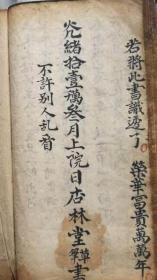 若将此書識透了
榮華富貴萬萬年
光緒拾壹歲叁月上院日杏林堂
書
不許别人乱看